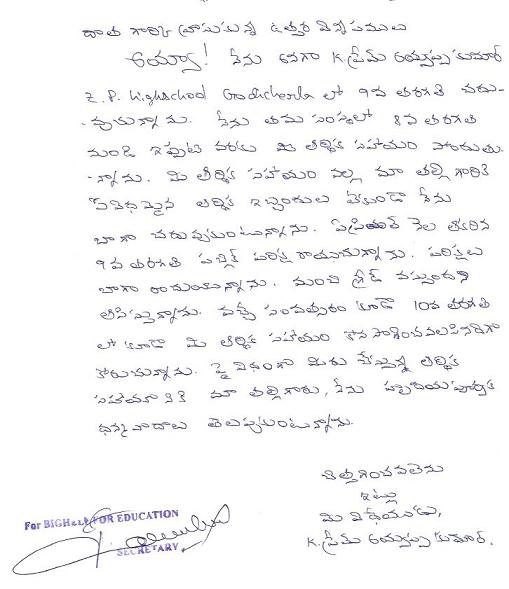 దాత గారికి వ్రాసుకున్న ఉత్తర విన్నపములు
అయ్యా! నేను అనగా K.ప్రేమ్ అయ్యప్ప కుమార్
Z.P. Highschool Gadicherla లో 9వ తరగతి చదు-
-వుచున్నాను. నేను తమ సంస్థలో 8వ తరగతి
నుండి ఇప్పటి వరకు మీ ఆర్థిక సహాయం పొందుతు-
-న్నాను. మీ ఆర్థిక సహాయం వల్ల మా తల్లి గారికి
ఏ విధమైన ఆర్థిక ఇబ్బందులు లేకుండా నేను
బాగా చదువుకుంటున్నాను. ఏప్రియల్ నెల తేదిన
9వ తరగతి పబ్లిక్ పరీక్ష రాయుచున్నాను. పరీక్షలు
బాగా రాయుచున్నాను. మంచి గ్రేడ్ వస్తుందని
ఆశిస్తున్నాను. వచ్చే సంవత్సరం కూడా 10వ తరగతి
లో కూడా మీ ఆర్థిక సహాయం కొనసాగించవలసినదిగా
కోరుచున్నాను. పై విధంగా మీరు చేస్తున్న ఆర్థిక
సహాయానికి మా తల్లిగారు, నేను హృదయపూర్వక
ధన్యవాదాలు తెలుపుకుంటున్నాను.
చిత్తగించవలెను
ఇట్లు
మీ విధేయుడు,
K.ప్రేమ్ అయ్యప్ప కుమార్.
For BIGHELP FOR EDUCATION
SECRETARY